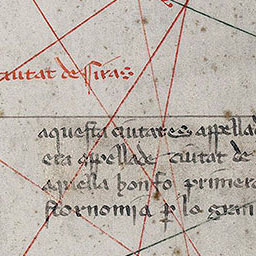 ciutat de siras
aquesta ciutat es appellad
era appellade ciutat de
aquella hon fo primera
stornomia per lo gran